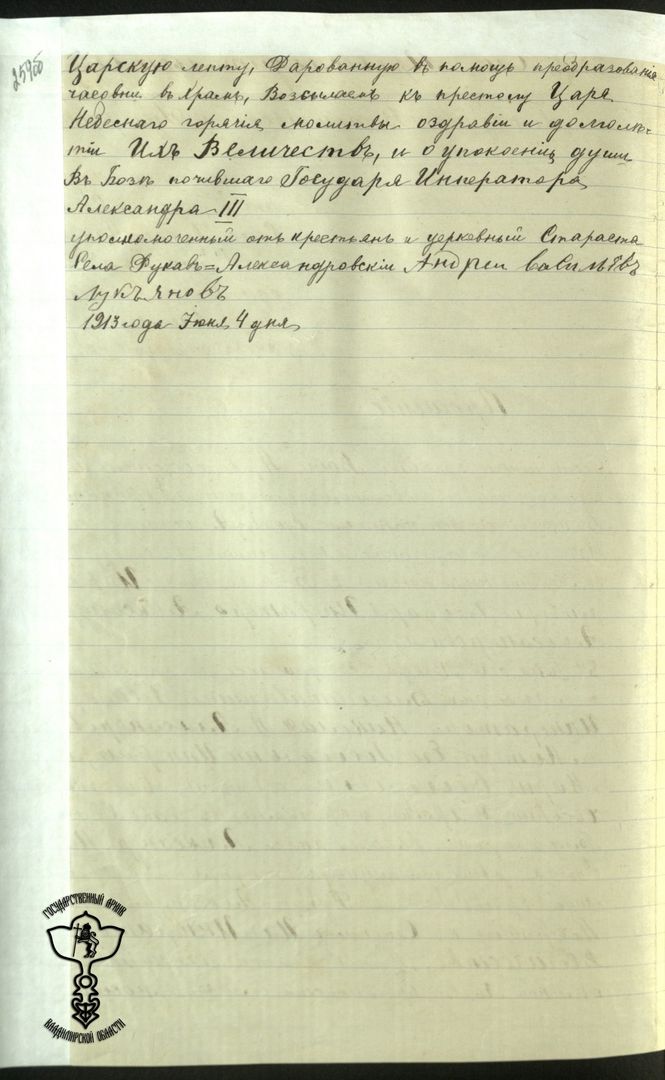 Царскую лепту, Дарованную въ помощь преобразованія
часовни въ Храмъ, Возсылаемъ къ престолу Царя
Небеснаго горячія молитвы оздравіи и долголѣ-
тіи Ихъ Величествъ, и о упокоеніи души
Въ Бозѣ почившаго Государя Императора
Александра III
уполномоченный отъ крестьянъ и церковный Староста
Села Александровскій Андрей
Лукъяновъ
1913 года Іюня 4 дня
ГОСУДАРСТВЕННЫЙ АРХИВ
ВЛАДИМИРСКОЙ ОБЛАСТИ